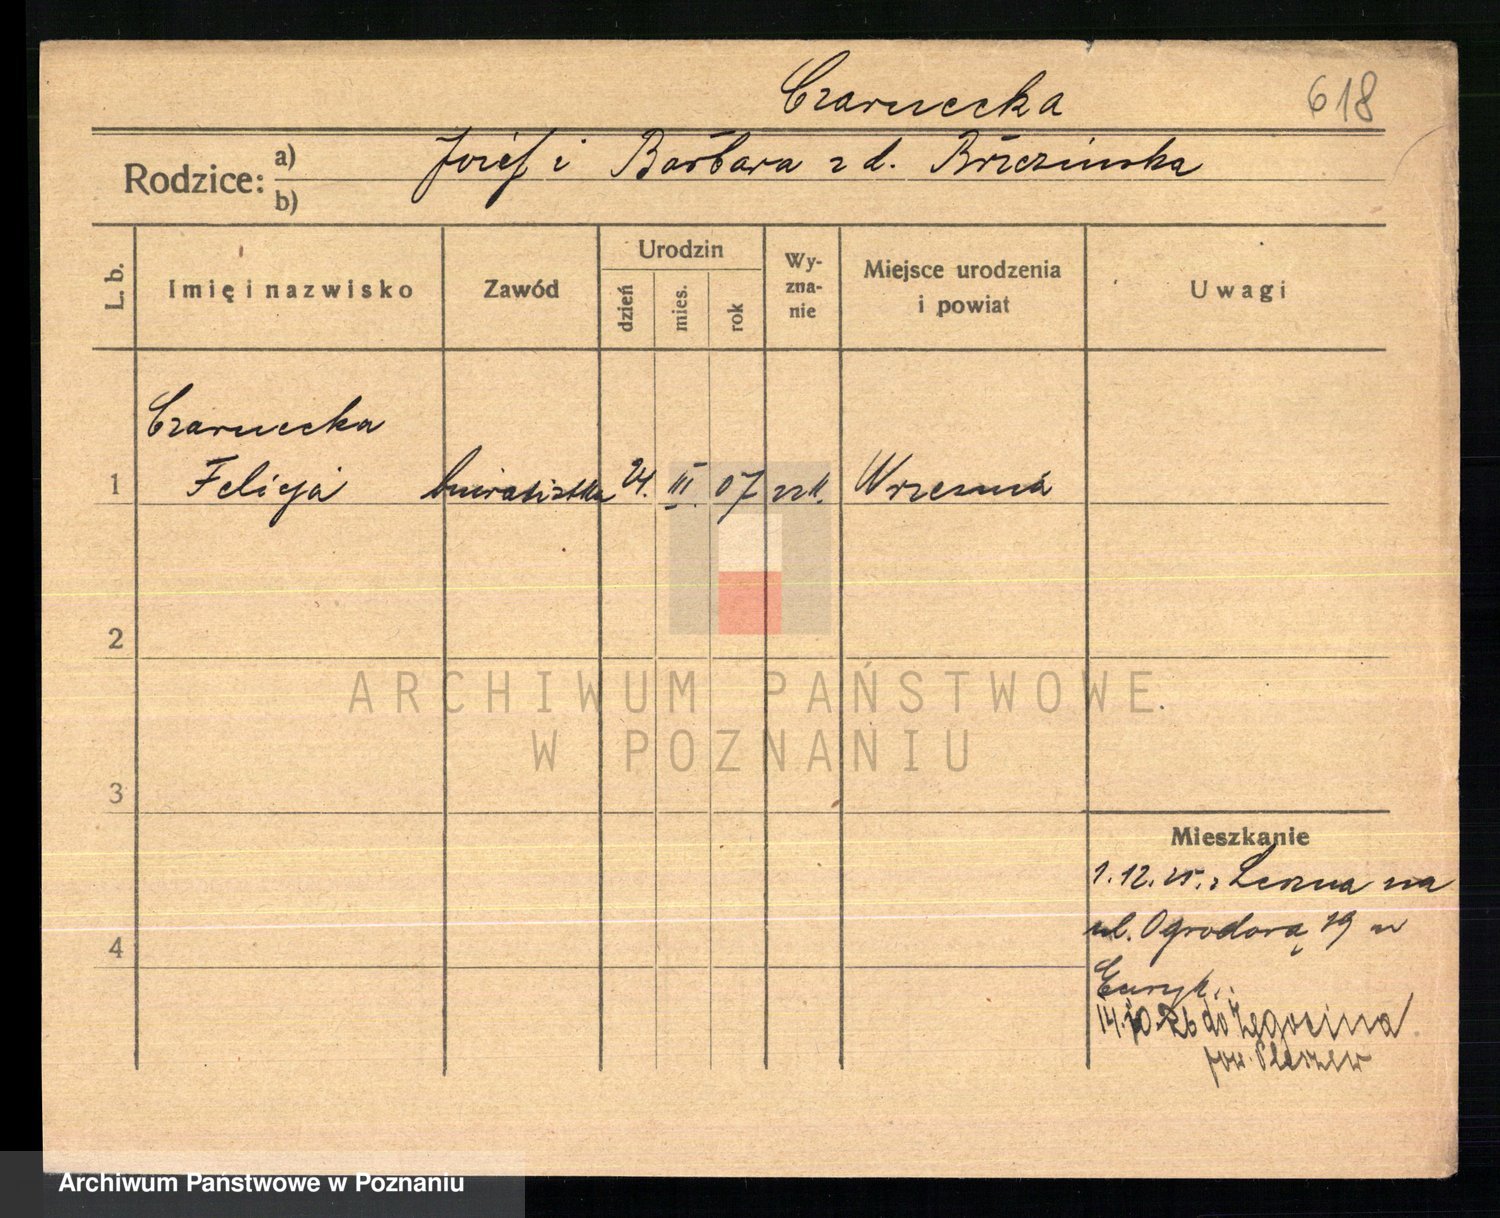 Czarnecka
618
Rodzice: a) Józef i Barbara z d. Brzezińska
b)
L. b.
Imię i nazwisko
Zawód
Urodzin
dzień
mies.
rok
Wy-
zna-
nie
Miejsce urodzenia
i powiat
Uwagi
Czarnecka
1 Felicja biuralistka 24. III. 07 rzk. Września
2
3
4
Mieszkanie
1.12.25. z Leszna na
ul. Ogrodową 19 u
14.10.26 do Żegocina
pow. Pleszew
ARCHIWUM PAŃSTWOWE
W POZNANIU
Archiwum Państwowe w Poznaniu